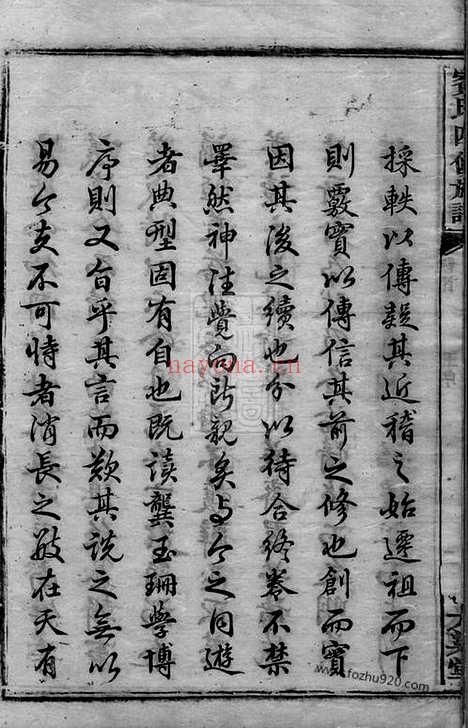 劉氏四修族譜
採軼以傳疑其近稽之始遷祖而下
則覈實以傳信其前之修也創而實
因其後之續也分以待合終卷不禁
睪然神往覺向所親矣與今之同遊
者典型固有自也既讀龔玉珊學博
序則又台乎其言而歎其說之無以
易今夫不可恃者消長之故在天有
nayona.cn
www.fozhu920.com